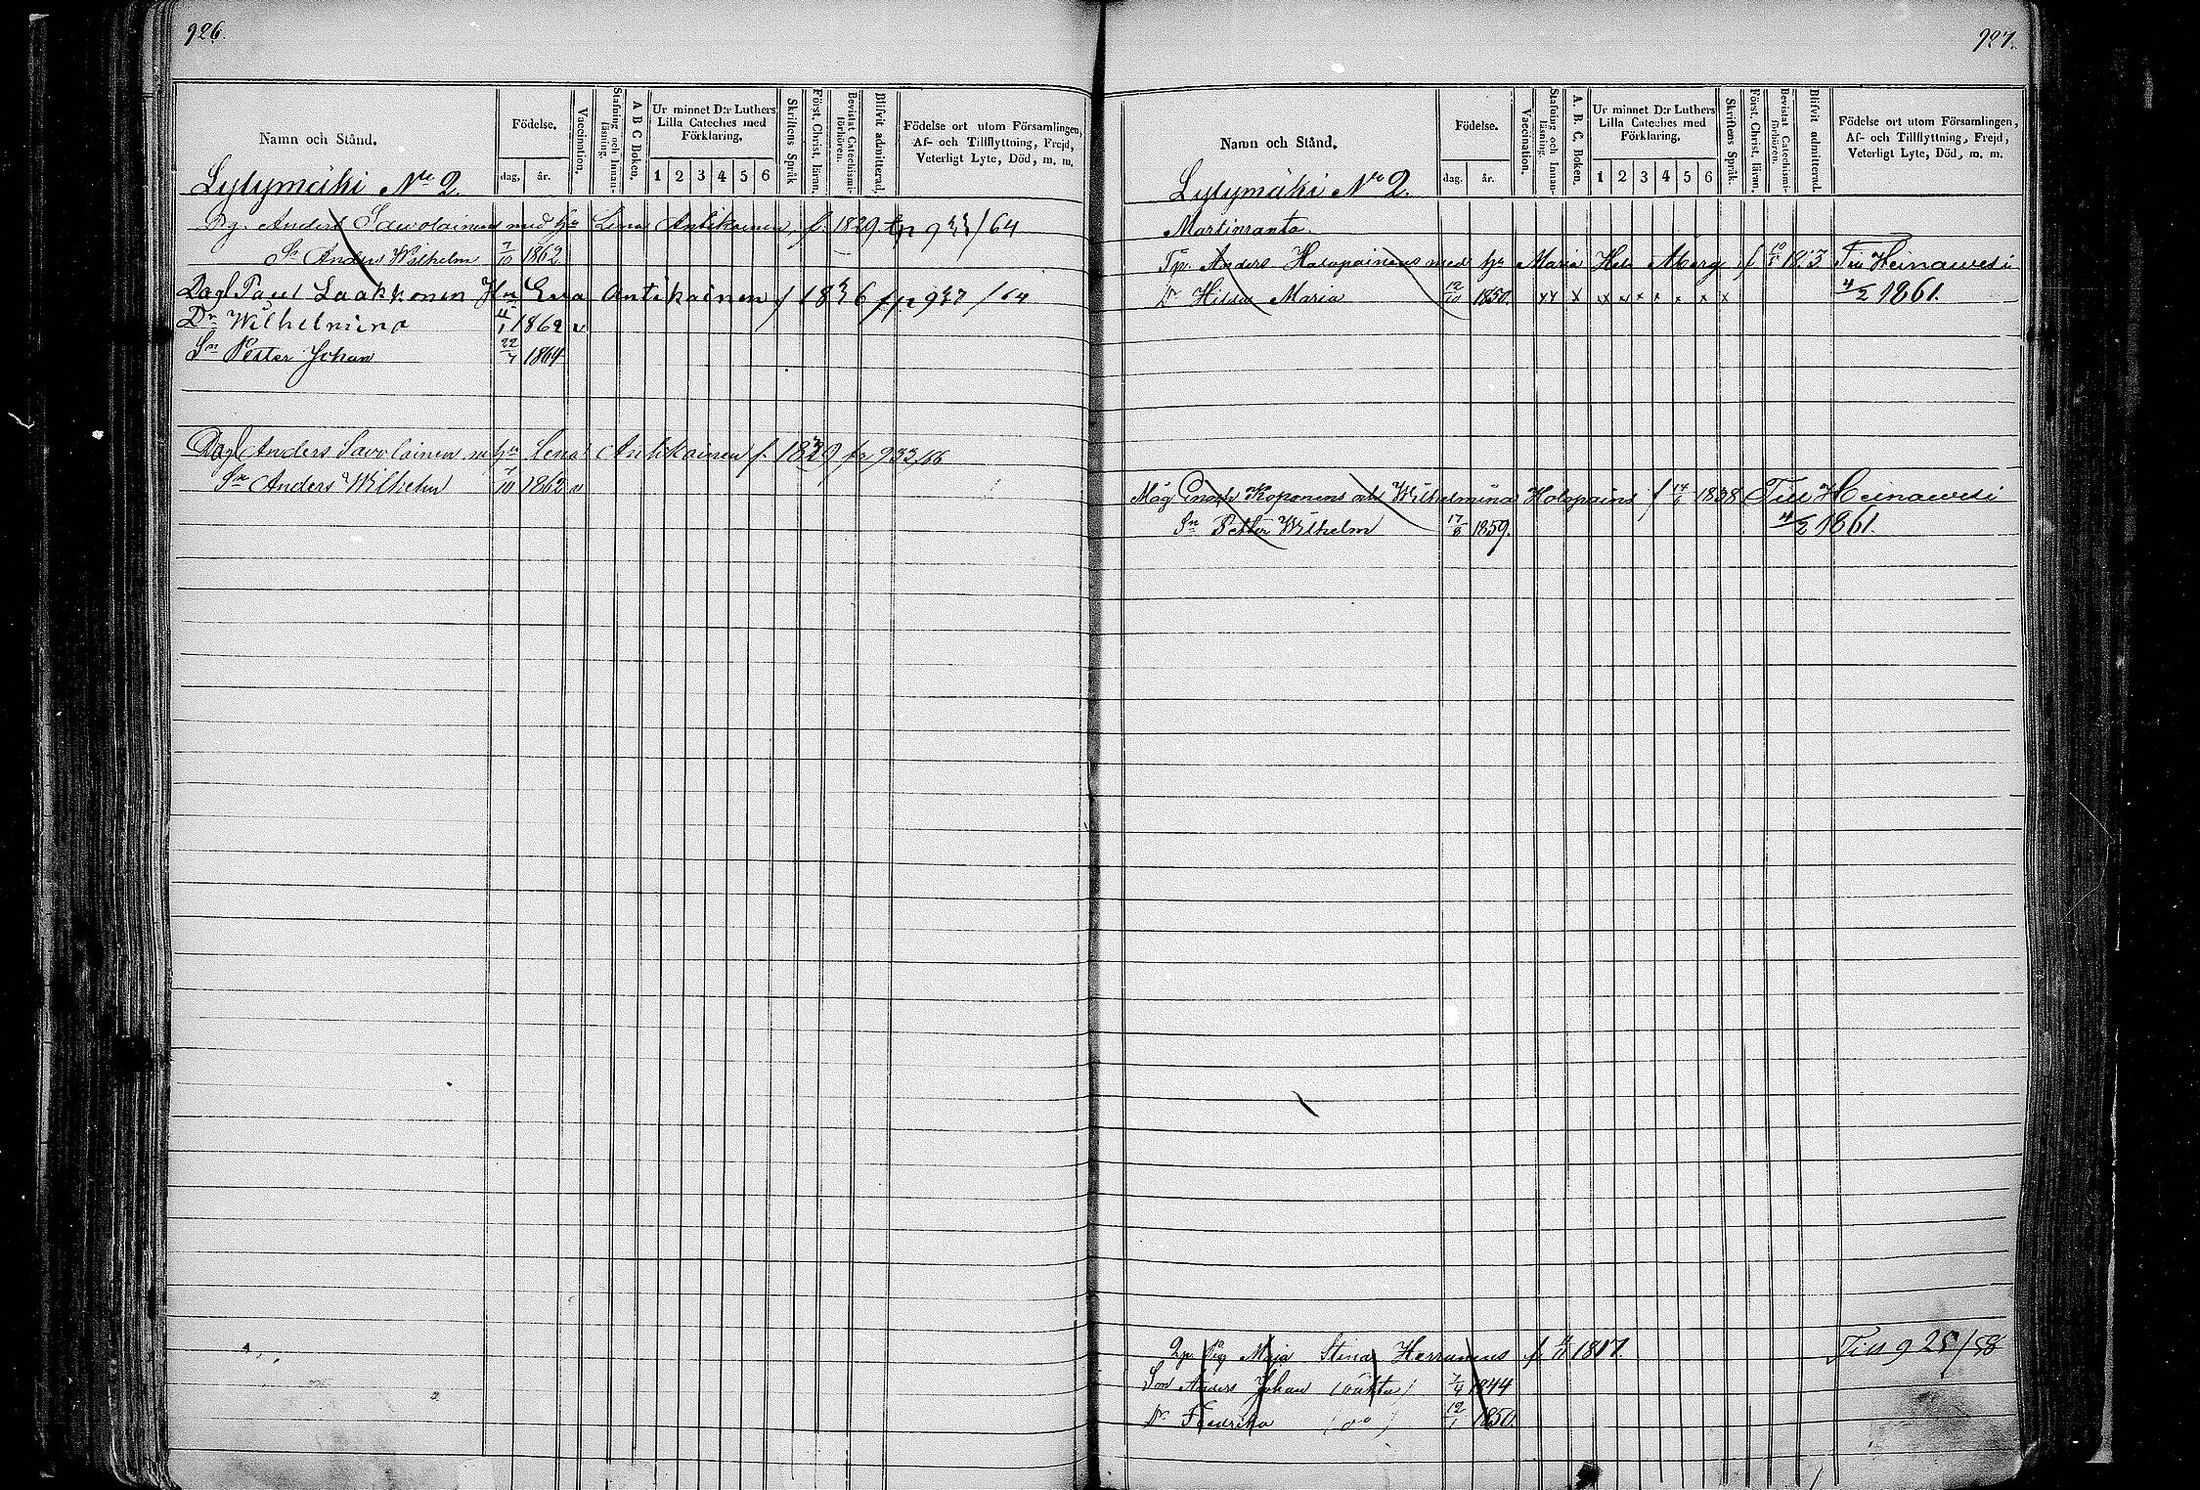 926.
Namn och Stånd.
Födelse.
dag. år.
Vaccination.
Stafning och Innanläsning.
A B C Boken.
Ur minnet D:r Luthers Lilla Cateches med Förklaring.
1 2 3 4 5 6
Skriftens Språk
Först. Christ. läran.
Bevistat Catechismiförhören.
Blifvit admitterad.
Födelse ort utom Församlingen, Af- och Tillflyttning, Frejd, Veterligt Lyte, Död, m. m.
Lylymäki No 2.
Dg. Anders Sawolainen med hu Lena Antikainen, f. 1829 fr 933/64
Sn Anders Wilhelm 7/10 1862
Dagl Paul Laakkonen Hu Eva Antikainen f 1836 fr 937/64
Dr Wilhelmina 4/1 1862 v
Sn Petter Johan 22/7 1864
Dagl Anders Savolainen m hu Lena Antikainen f. 1829 fr 933/66
Sn Anders Wilhelm 7/10 1862 v
927.
Namn och Stånd.
Födelse.
dag. år.
Vaccination.
Stafning och Innanläsning
A. B. C. Boken.
Ur minnet D:r Luthers Lilla Cateches med Förklaring.
1 2 3 4 5 6
Skriftens Språk.
Först. Christ. läran.
Bevistat Catechismiförhören.
Blifvit admitterad.
Födelse ort utom Församlingen, Af- och Tillflyttning, Frejd, Veterligt Lyte, Död, m. m.
Lylymäki No 2.
Martinranta.
Tp. Anders Holopainens med hu Maria Hel. Åberg f Till Heinawesi
Dr Hilda Maria 12/10 1850. xx x x x x x x x x 4/2 1861.
Måg Enoch Koponens Wilhelmina Holopains f 14/6 1838 Till Heinawesi
Sn Petter Wilhelm 17/8 1859. 4/2 1861.
Maja Stina Herranens f. 1817. Till 925/58
Son Anders Johan (oäkta) 7/4 1844
Dr Fredrika (do) 12/1 1850.